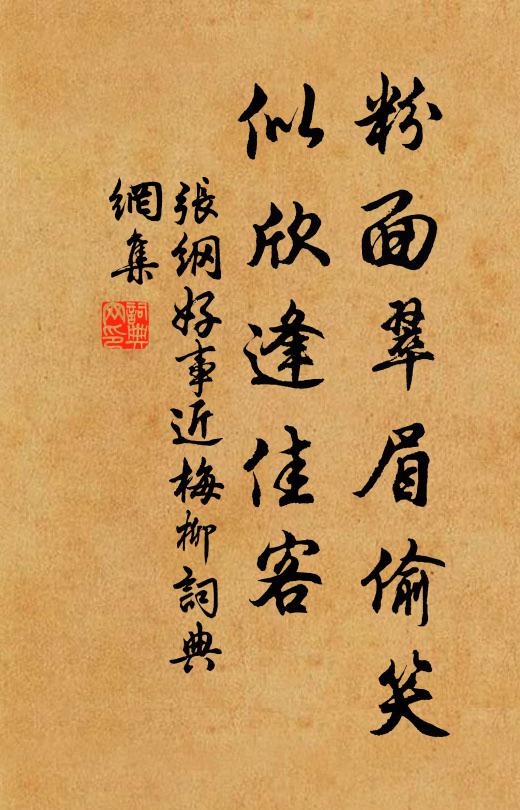 粉面翠眉偷笑
似欣逢佳客
張綱好事近梅柳詞典
網集
詞典
文印